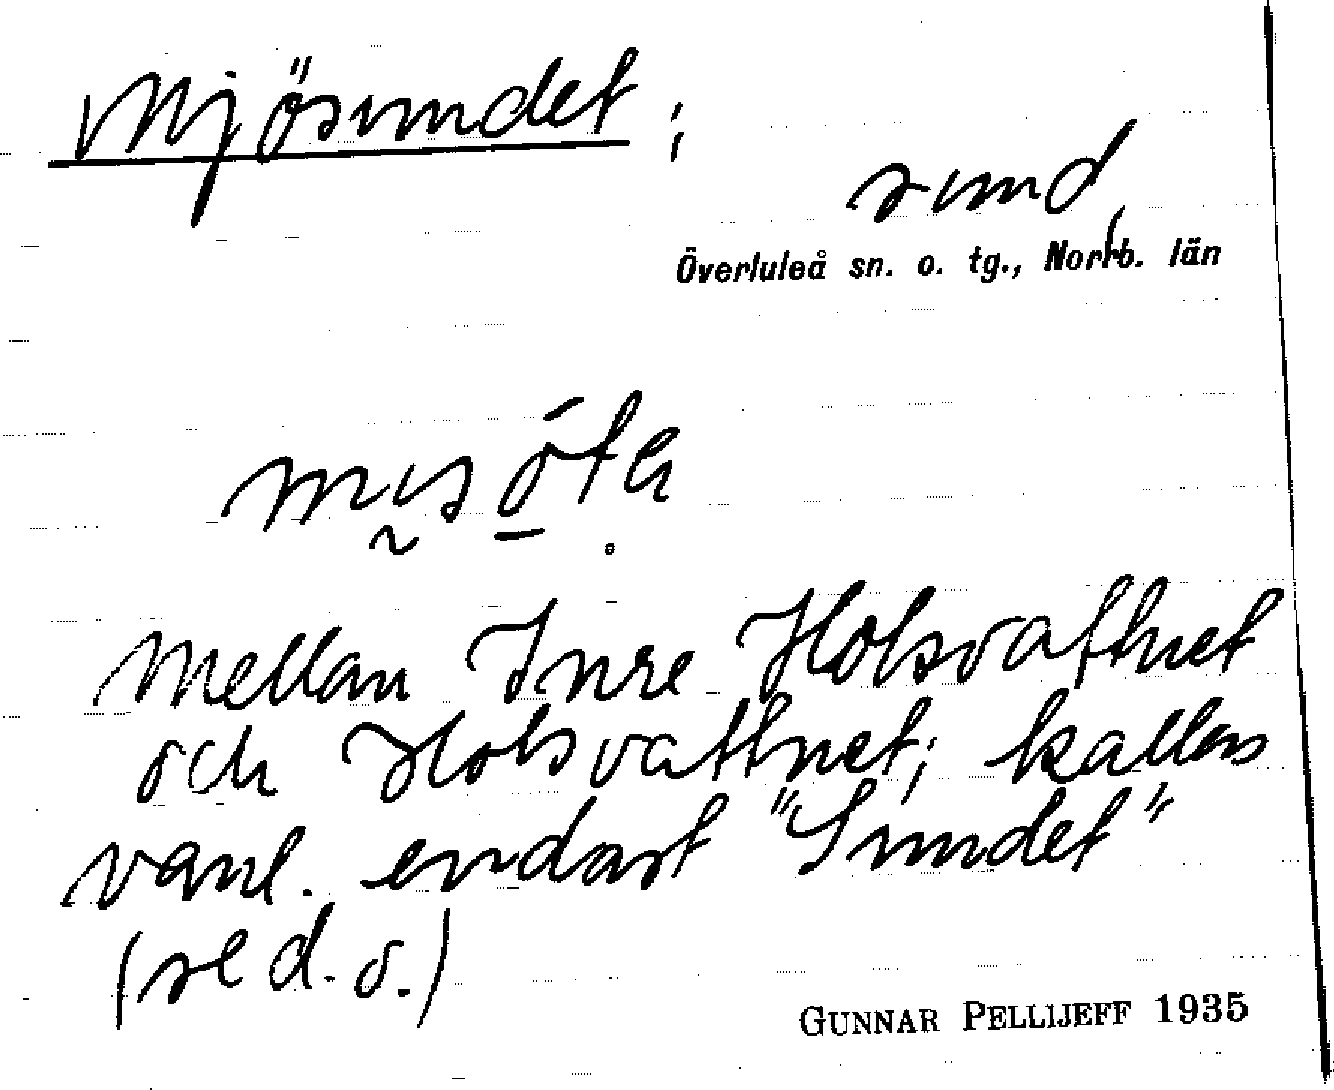 Mjösundet;
sund,
Överluleå sn. o. tg., Norrb. län
Mellan Inre Holsvattnet
och Holsvattnet; kallas
vanl. endast "Sundet"
(se d. o.)
GUNNAR PELLIJEFF 1935